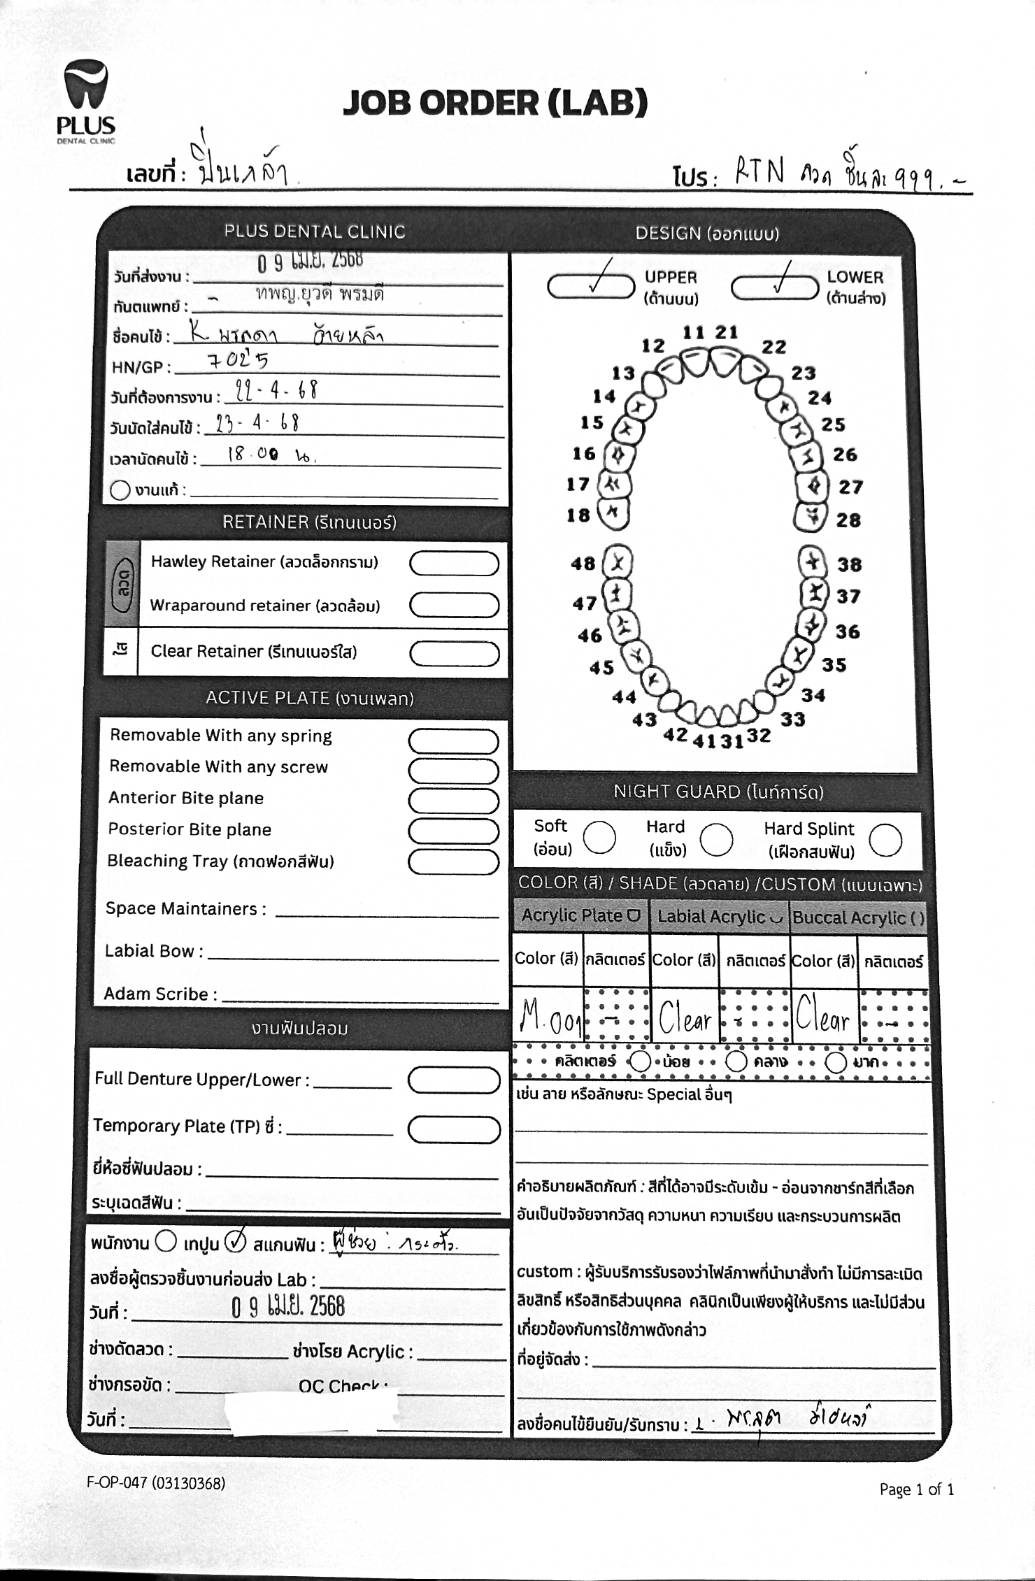 PLUS
DENTAL CLINIC
JOB ORDER (LAB)
เลขที่ : ปิ่นเกล้า
โปร : RTN ลวด ชิ้นละ 999.-
PLUS DENTAL CLINIC
วันที่ส่งงาน : 09 เม.ย. 2568
ทันตแพทย์ : - ทพญ.ยุวดี พรมดี
ชื่อคนไข้ : K
HN/GP : 7025
วันที่ต้องการงาน : 22-4-68
วันนัดใส่คนไข้ : 23-4-68
เวลานัดคนไข้ : 18.00 น.
งานแก้ :
RETAINER (รีเทนเนอร์)
ลวด
Hawley Retainer (ลวดล็อกกราม)
Wraparound retainer (ลวดล้อม)
ใส
Clear Retainer (รีเทนเนอร์ใส)
ACTIVE PLATE (งานเพลท)
Removable With any spring
Removable With any screw
Anterior Bite plane
Posterior Bite plane
Bleaching Tray (ถาดฟอกสีฟัน)
Space Maintainers :
Labial Bow :
Adam Scribe :
งานฟันปลอม
Full Denture Upper/Lower :
Temporary Plate (TP) ซี่ :
ยี่ห้อซี่ฟันปลอม :
ระบุเฉดสีฟัน :
พนักงาน เทปูน ✓ สแกนฟัน : ผู้ช่วย :
ลงชื่อผู้ตรวจชิ้นงานก่อนส่ง Lab :
วันที่ : 09 เม.ย. 2568
ช่างดัดลวด : ช่างโรย Acrylic :
ช่างกรอขัด : OC Check :
วันที่ :
DESIGN (ออกแบบ)
✓ UPPER (ด้านบน)
✓ LOWER (ด้านล่าง)
11 21
12 22
13 23
14 24
15 25
16 26
17 27
18 28
48 38
47 37
46 36
45 35
44 34
43 33
42 41 31 32
NIGHT GUARD (ไนท์การ์ด)
Soft (อ่อน)
Hard (แข็ง)
Hard Splint (เฝือกสบฟัน)
COLOR (สี) / SHADE (ลวดลาย) /CUSTOM (แบบเฉพาะ)
Acrylic Plate Labial Acrylic Buccal Acrylic ( )
Color (สี) กลิตเตอร์ Color (สี) กลิตเตอร์ Color (สี) กลิตเตอร์
M.001 - Clear - Clear -
กลิตเตอร์ น้อย กลาง มาก
เช่น ลาย หรือลักษณะ Special อื่นๆ
คำอธิบายผลิตภัณฑ์ : สีที่ได้อาจมีระดับเข้ม - อ่อนจากชาร์ทสีที่เลือก
อันเป็นปัจจัยจากวัสดุ ความหนา ความเรียบ และกระบวนการผลิต
custom : ผู้รับบริการรับรองว่าไฟล์ภาพที่นำมาสั่งทำ ไม่มีการละเมิด
ลิขสิทธิ์ หรือสิทธิส่วนบุคคล คลินิกเป็นเพียงผู้ให้บริการ และไม่มีส่วน
เกี่ยวข้องกับการใช้ภาพดังกล่าว
ที่อยู่จัดส่ง :
ลงชื่อคนไข้ยืนยัน/รับทราบ :
F-OP-047 (03130368)
Page 1 of 1